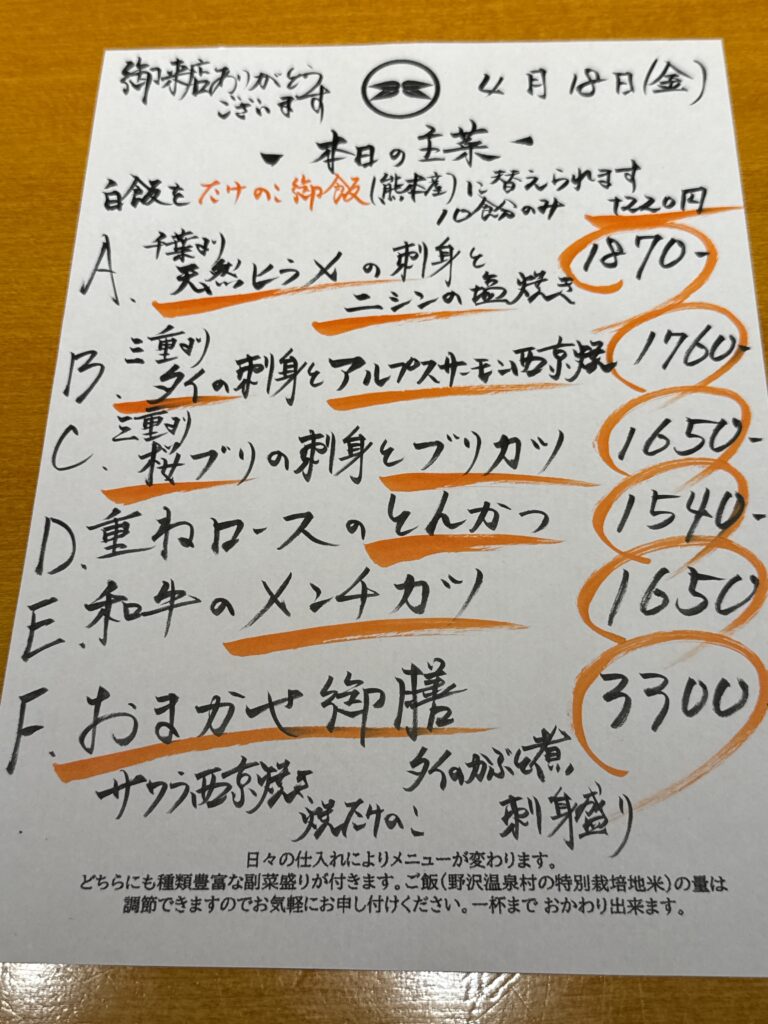 御来店ありがとう
ございます
4月18日(金)
本日の主菜
白飯を たけのこ御飯(熊本産)に替えられます
10食分のみ +220円
A. 千葉より
天然ヒラメの刺身と
ニシンの塩焼き 1870-
B. 三重より
タイの刺身とアルプスサーモン西京焼 1760-
C. 三重より
桜ブリの刺身とブリカツ 1650-
D. 重ねロースのとんかつ 1540-
E. 和牛のメンチカツ 1650
F. おまかせ御膳 3300
サワラ西京焼き タイのかぶと煮
焼たけのこ 刺身盛り
日々の仕入れによりメニューが変わります。
どちらにも種類豊富な副菜盛りが付きます。ご飯(野沢温泉村の特別栽培地米)の量は
調節できますのでお気軽にお申し付けください。一杯まで おかわり出来ます。